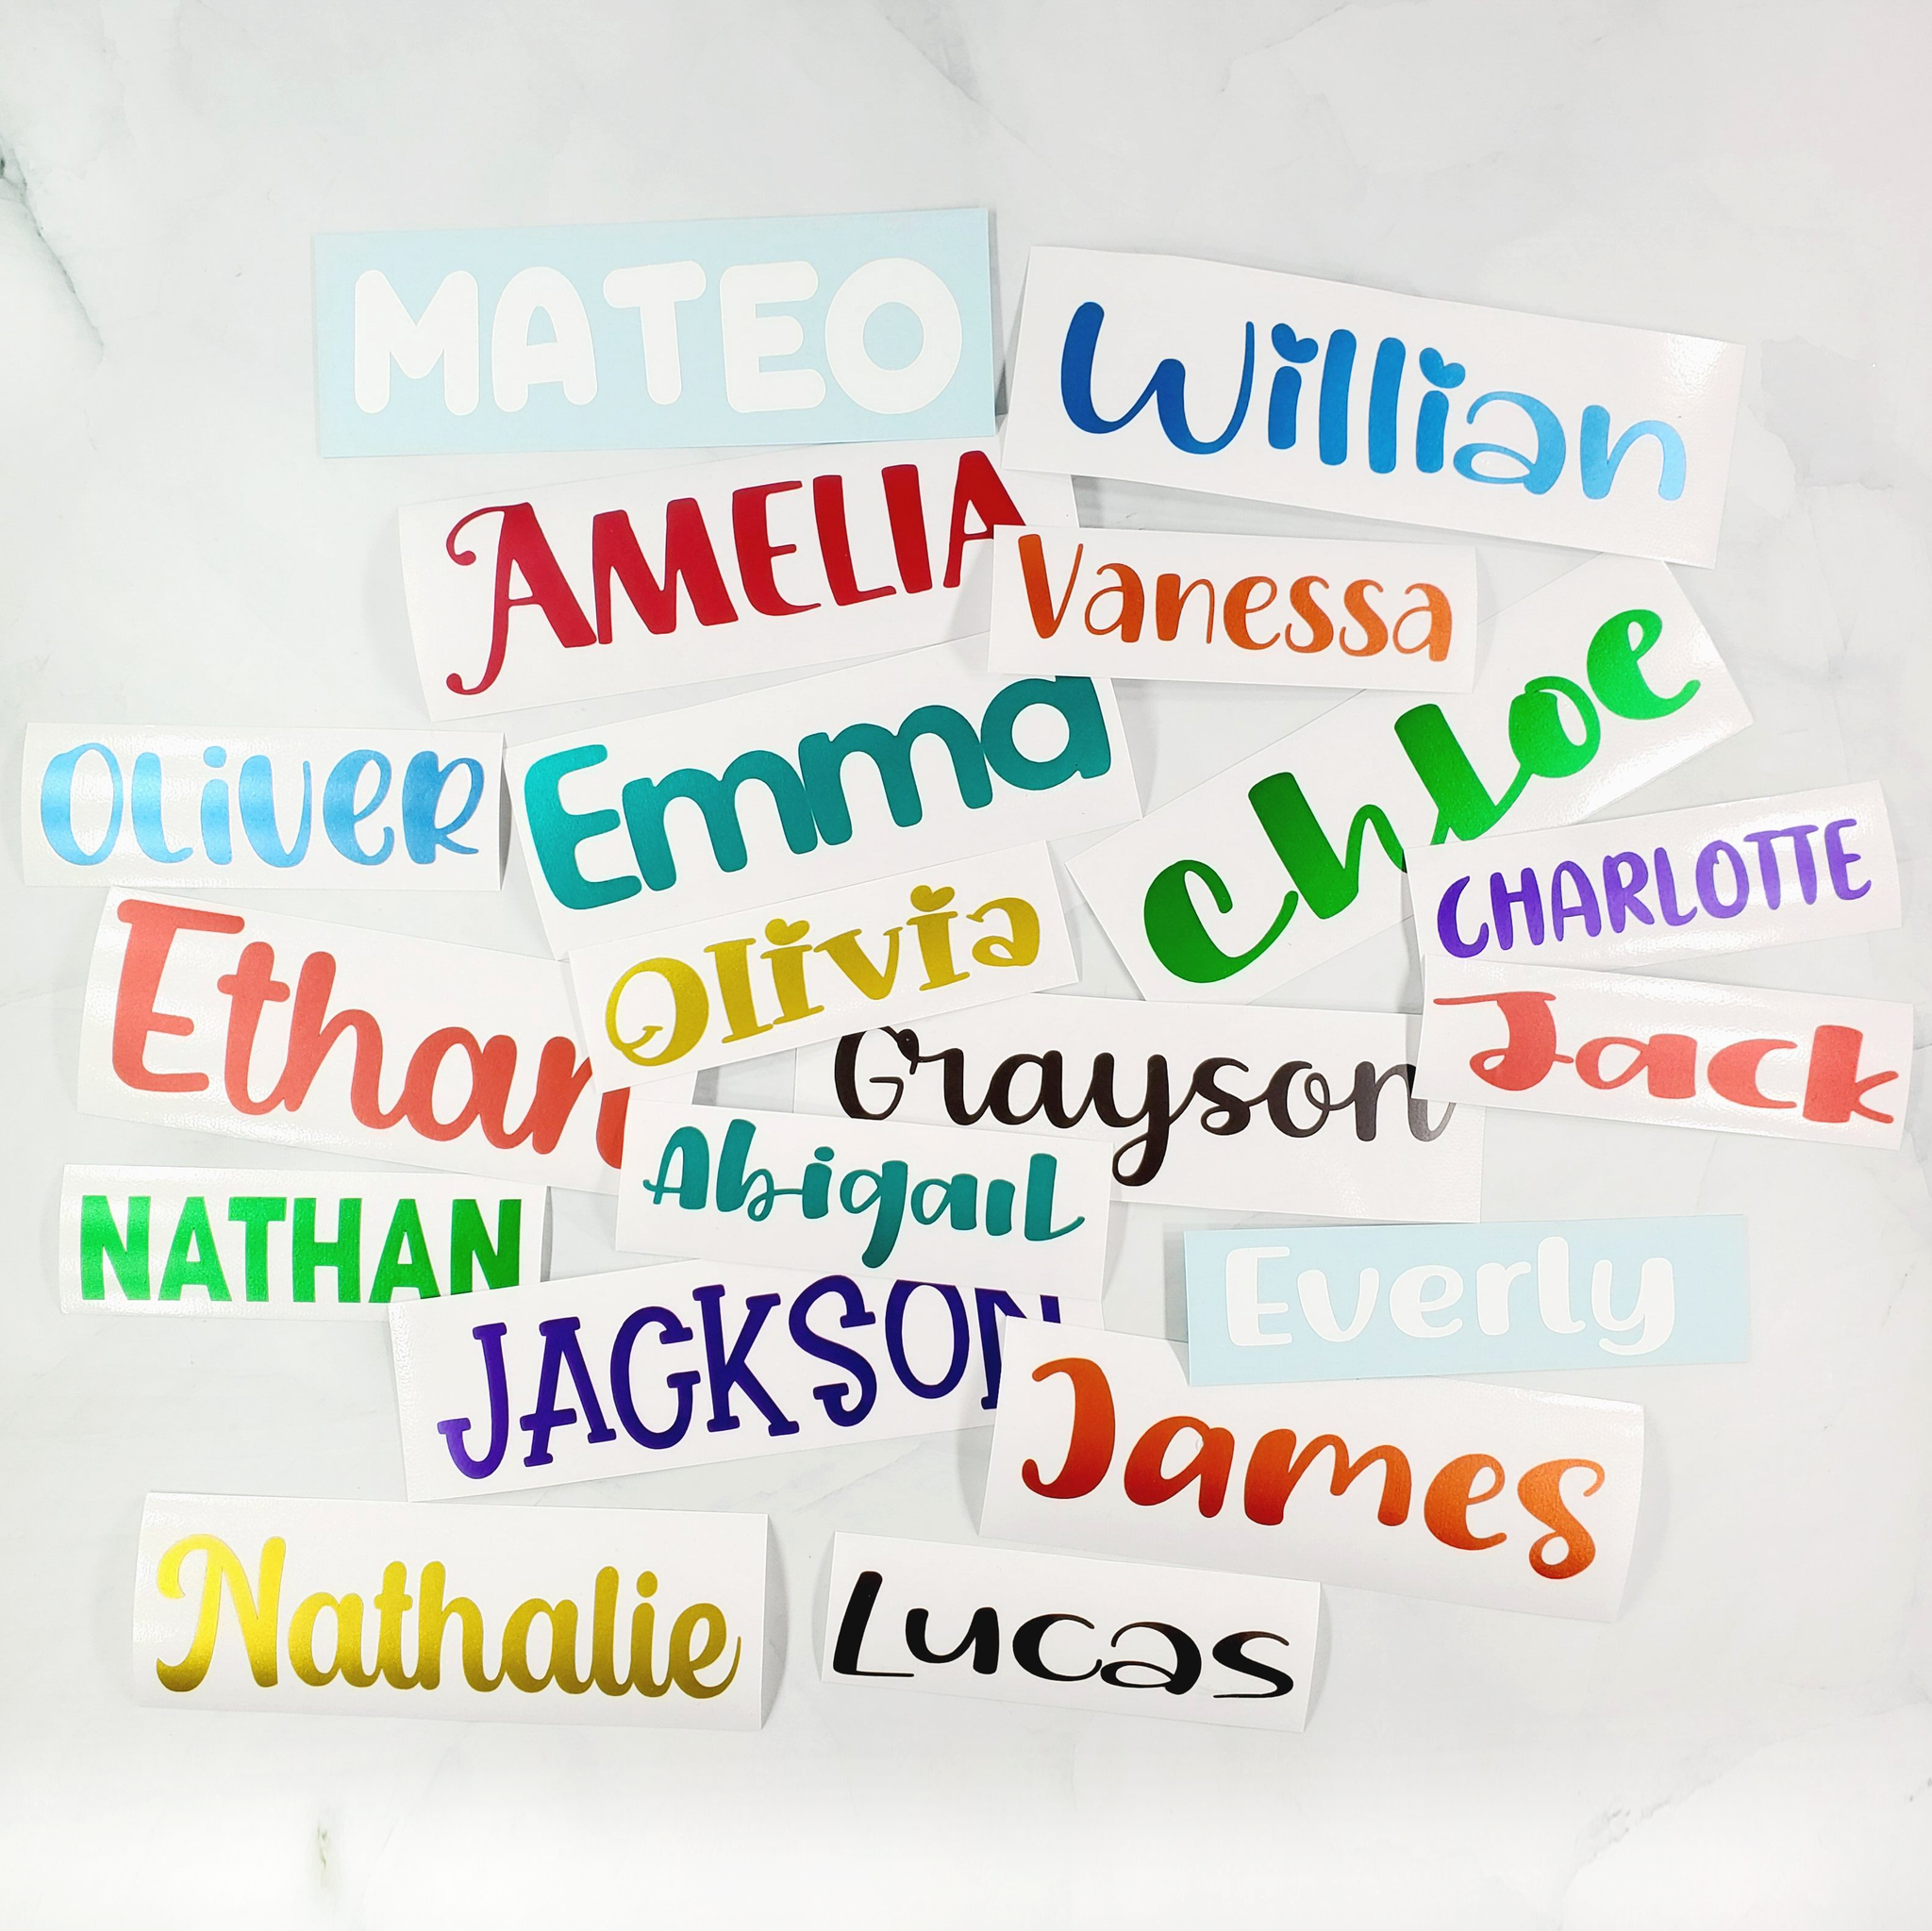 MATEO
Willian
AMELIA
Vanessa
Emma
Chloe
OLiVeR
CHARLOTTE
Ethan
Olivia
Grayson
Jack
NATHAN
AbigaiL
Everly
JACKSON
James
Nathalie
Lucas